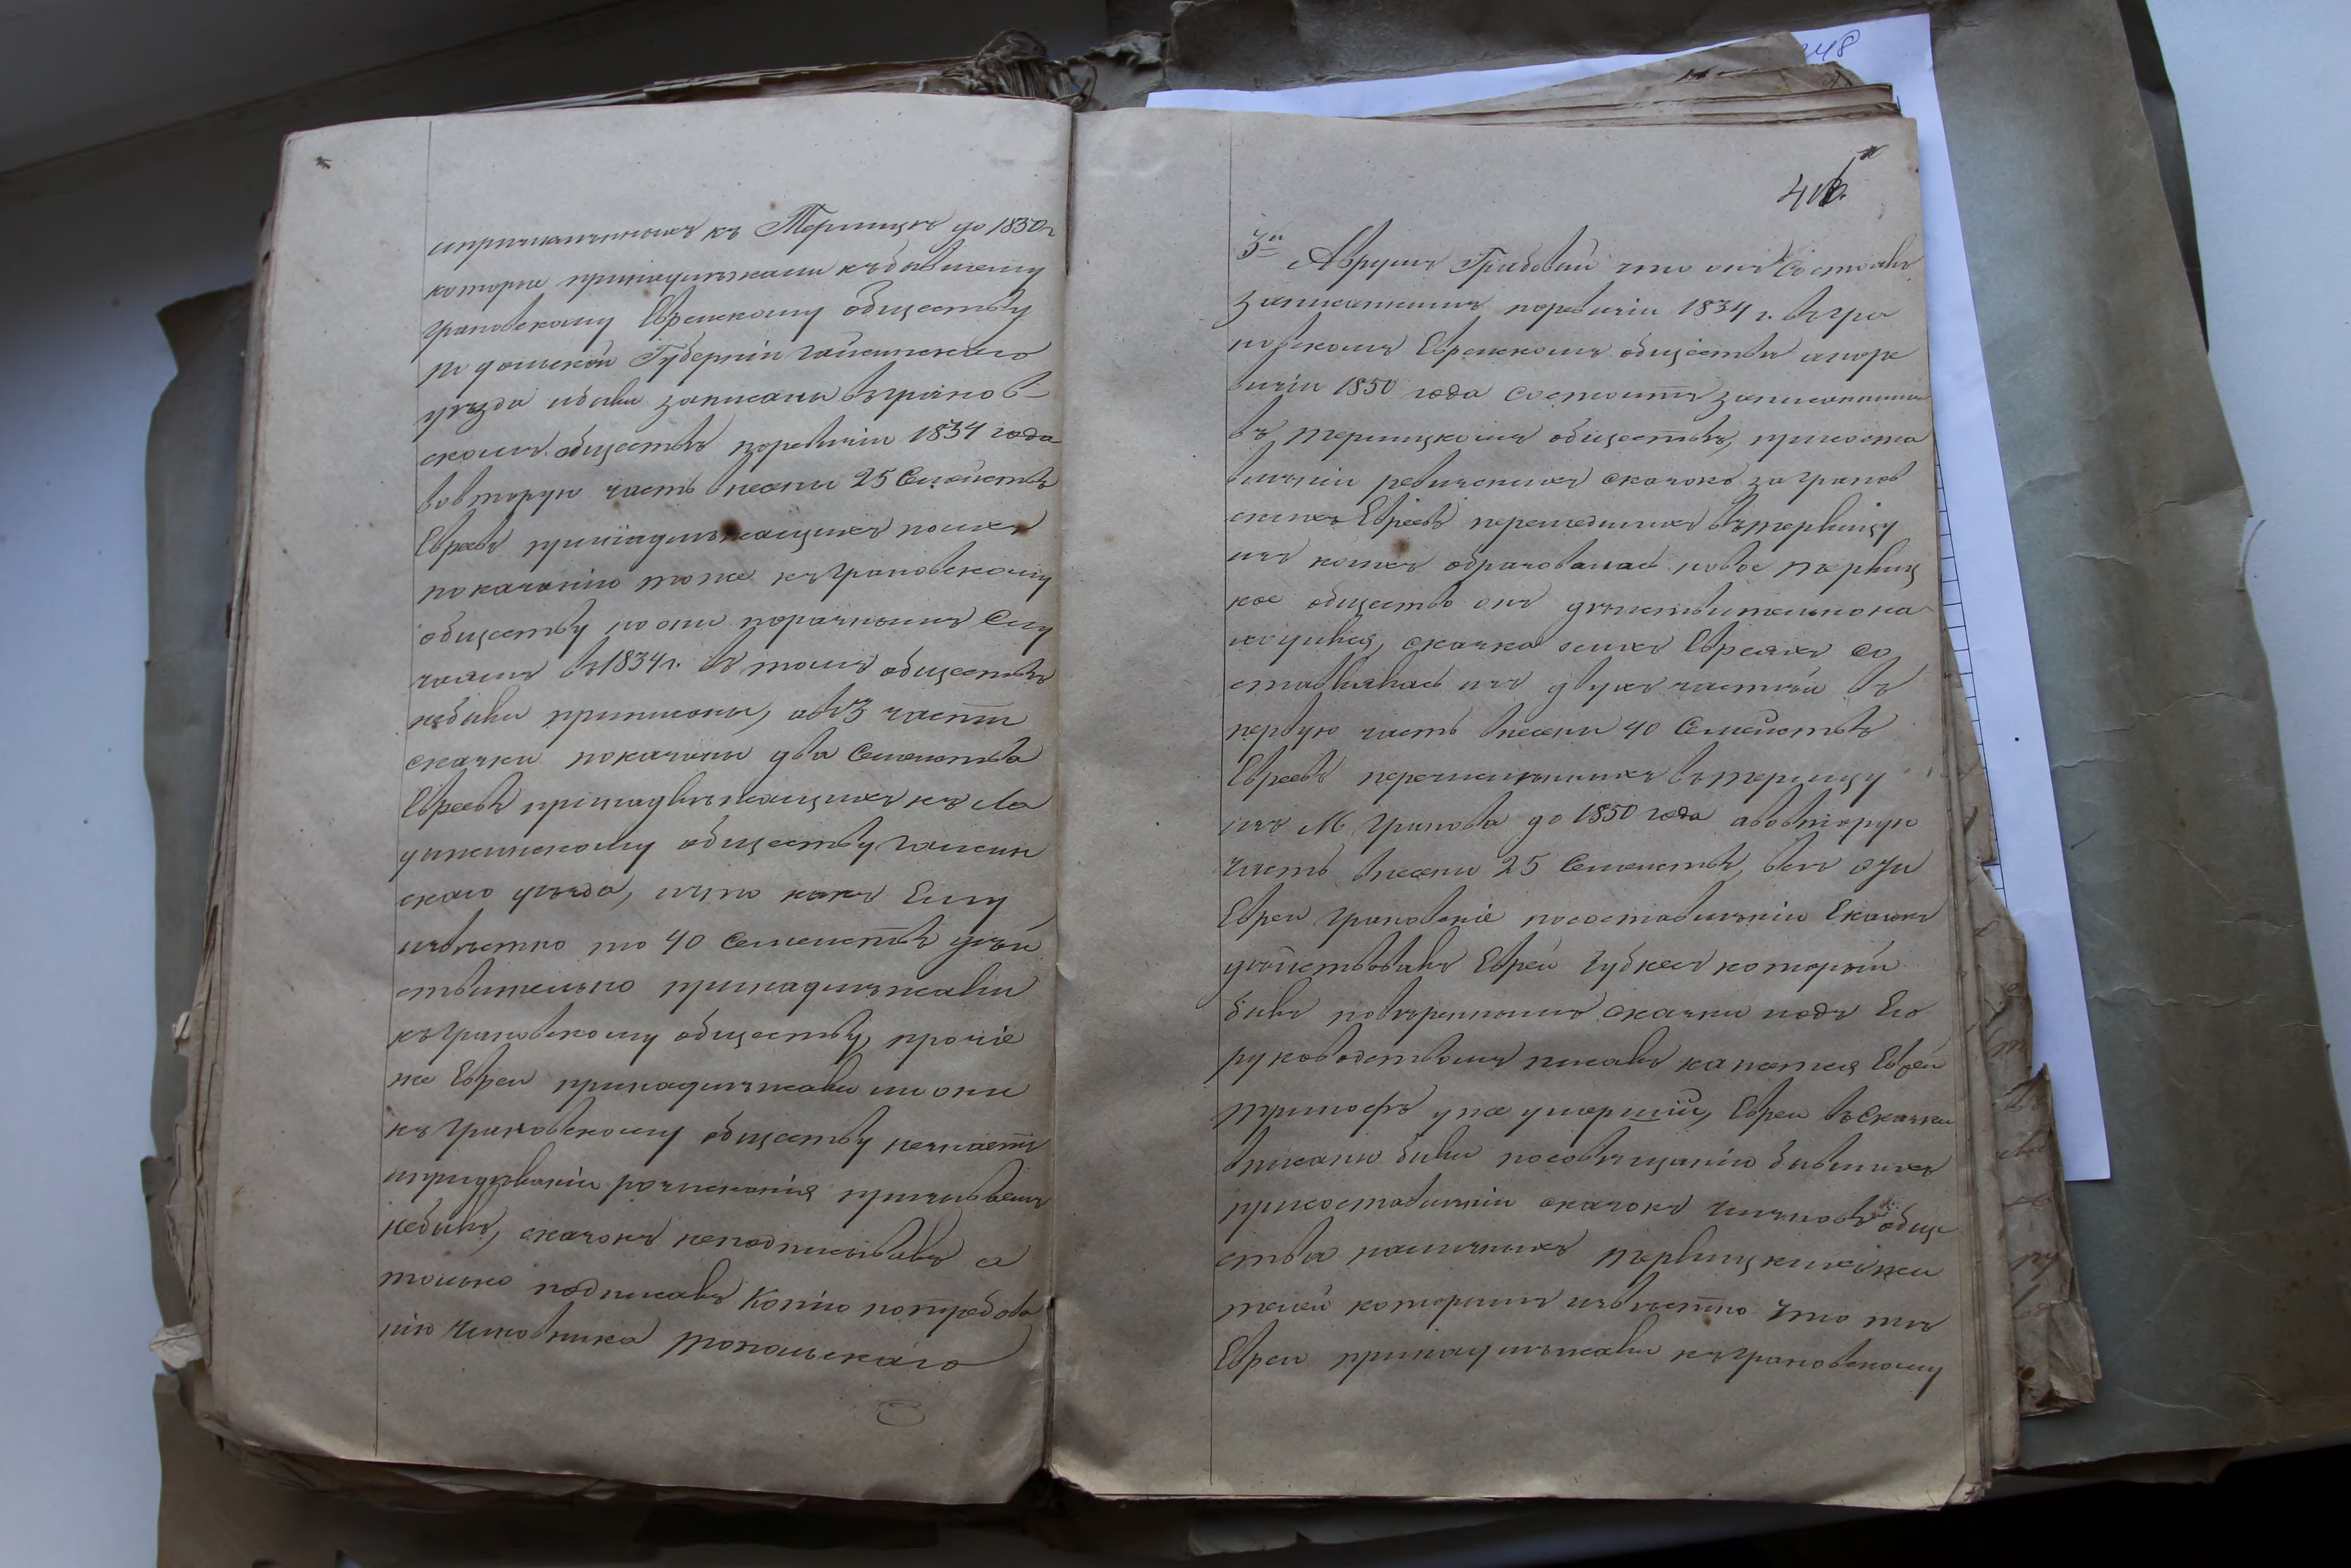 и причисленныхъ къ Терлицѣ до 1850 г
которые принадлежали къ бывшему
грановскому Еврейскому обществу
подольской Губерніи гайсинскаго
уѣзда и были записаны въ гранов-
скомъ обществѣ поревизіи 1834 года
вовторую часть внесены 25 Семействъ
Евреевъ принадлежащихъ поихъ
показанію тоже къ грановскому
обществу но они поразнымъ Слу
чаямъ в 1834 г. въ томъ обществѣ
небыли приписаны, а въ 3 части
сказки показаны два Семейства
Евреевъ принадлежащихъ къ Ла
дыжинскому обществу гайсин
скаго уѣзда, и что какъ Ему
извѣстно то 40 Семействъ дѣй
ствительно принадлежали
къ грановскому обществу, прочіе
же Евреи принадлежали ли они
къ грановскому обществу незнаетъ
и придѣланіи розысканія причиною
небылъ, сказокъ неподписывалъ а
только подписалъ Копію потребова
нію Чиновника Топольскаго
248
3й Аврумъ Грибовый что онъ Состоялъ
записаннымъ поревизіи 1834 г. въ гра
новскомъ Еврейскомъ обществѣ а поре
визіи 1850 года состоитъ записаннымъ
въ терлицкомъ обществѣ, при соста
вленіи ревизскихъ сказокъ за гранов
скихъ Евреевъ перешедшихъ въ терлицу
изъ коихъ образовалось новое терлиц
кое общество онъ дѣйствительно на
ходился, сказка о сихъ Евреяхъ со
ставлялась изъ двухъ частей въ
первую часть внесены 40 Семействъ
Евреевъ перечисленныхъ въ терлицу
изъ М. Гранова до 1850 года а вовторую
часть внесены 25 Семействъ, все эти
Евреи грановскіе посоставленіи Сказокъ
дѣйствовалъ Еврей Губкес который
былъ повѣреннымъ сказки подъ Его
руководствомъ писалъ Еврей
уже умершій, Евреи въ Сказки
вписаны были посовѣщанію бывшихъ
присоставленіи сказокъ Членовъ обще
ства наличныхъ терлицкихъ жи
телей которымъ извѣстно что те
Евреи принадлежали къ грановскому